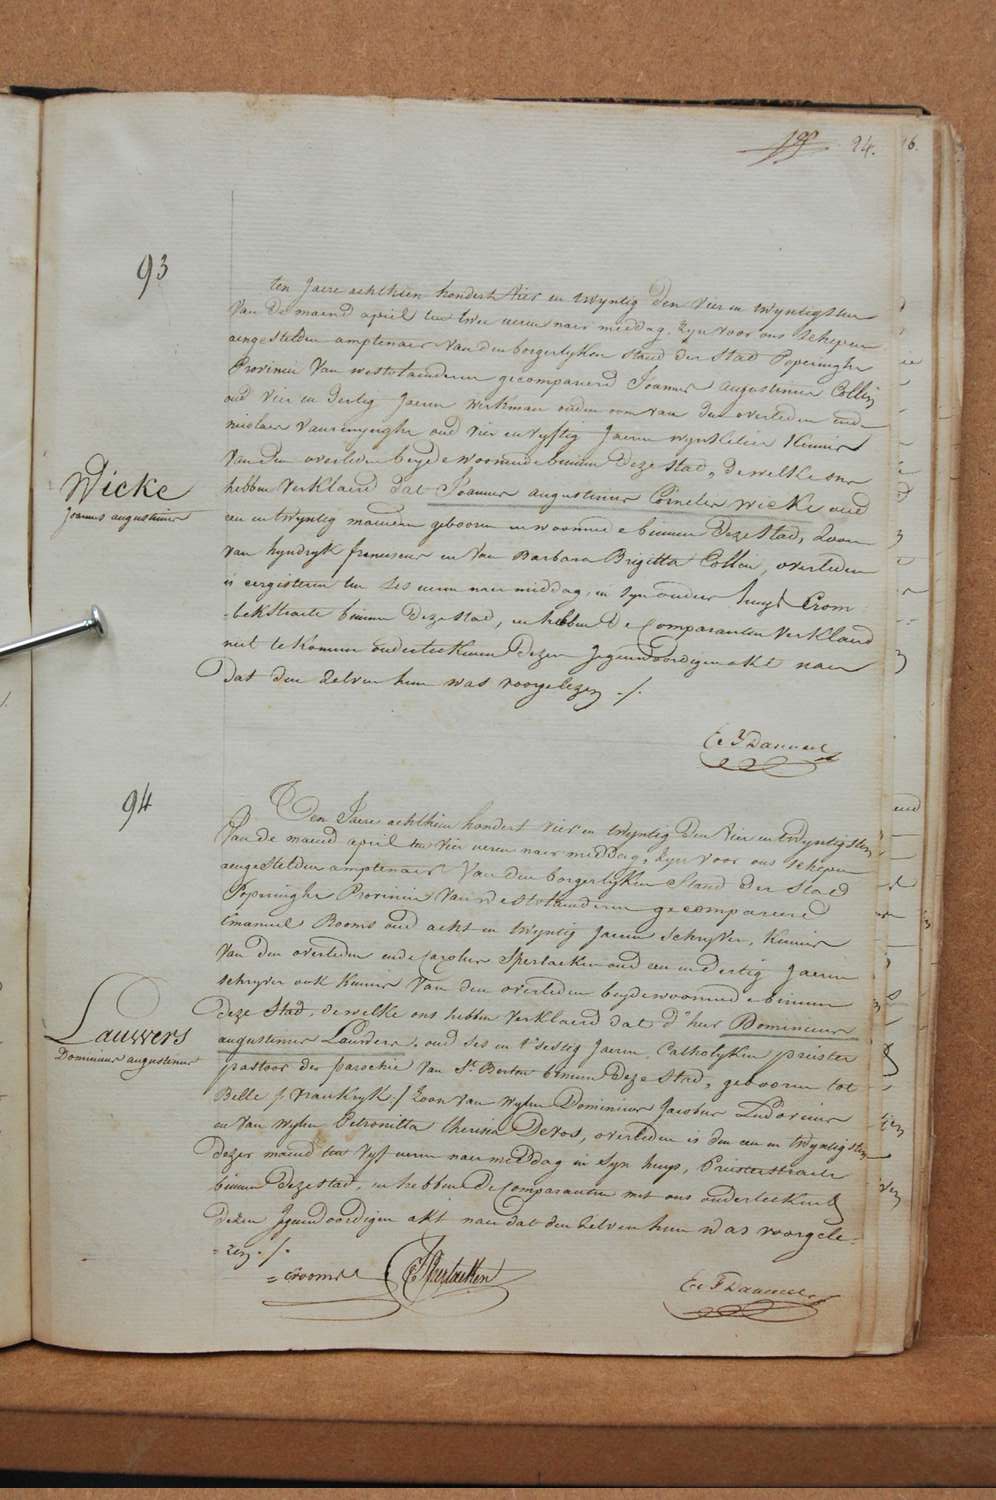 94. 96.
93
ten Jaere achthien hondert Vier en twyntig den vier en twyntigsten
Van de maend april ten twee uren naer middag, zyn voor ons schepen
aengestelden amptenaer van den borgerlyken stand der stad Poperinghe
Provincie Van westvlaenderen gecompareerd Joannes augustinus Collin
oud vier en dertig Jaeren werkman ouden oom van den overleden ende
nicolaes Vanrenynghe oud vier en vyftig Jaeren wynkelier Kennis
Van den overleden beyde woonende binnen deze stad, dewelke ons
hebben verklaerd dat Joannes augustinus Cornelis Wicke oud
een en twyntig maenden gebooren en woonende binnen deze stad, zoon
van hyndryk franciscus en Van Barbara Brigitta Collin, overleden
is eergisteren ten ses uren naer middag, in syn ouders huys Crom
=bekstraete binnen deze stad, en hebben de Comparanten verklaerd
niet te konnen onderteekenen dezen Jegenwoordigen akt naer
dat den zelven hun was voorgelezen ./.
Wicke
Joannes augustinus
C: F Danneel
94
Ten Jaere achthien hondert vier en twyntig den vier en twyntigsten
Van de maend april ten vier uren naer middag, zyn voor ons schepen
aengestelden amptenaer Van den borgerlyken Stand der Stad
Poperinghe Provincie Van Westvlaenderen gecompareerd
Emanuel Rooms oud acht en twyntig Jaeren schryver, Kennis
Van den overleden ende Carolus Sperlaeken oud een en dertig Jaeren
schryver ook Kennis Van den overleden beyde woonende binnen
deze Stad, dewelke ons hebben verklaerd dat d'heer Dominicus
augustinus Lauwers, oud ses en t'sestig Jaeren, Catholyken priester
pastoor der parochie Van St. Bertin binnen deze Stad, gebooren tot
Belle /: vrankryk :/ zoon van wylen Dominicus Jacobus Ludovicus
en van wylen Petronilla theresia Devos, overleden is den een en twyntigsten
dezer maend ten vyf uren naer middag in syn huys, Priesterstraete
binnen deze stad, en hebben de Comparanten met ons onderteekend
dezen Jegenwoordigen akt naer dat den zelven hun was voorgele=
=zen ./.
Lauwers
Dominicus augustinus
E Rooms C Sperlaeken C: F Danneel